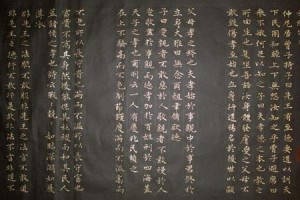 仲尼居曾子侍子曰先王有至德要道以訓天
下民用和睦上下無怨女知之乎曾子避席曰
參不敏何足以知之子曰夫孝德之本也教之
所由生也復坐吾語女身體髮膚受之父母不
敢毀傷孝之始也立身行道揚名於後世以顯
父母孝之終也夫孝始於事親中於事君終於
立身大雅云無念爾祖聿脩厥德
子曰愛親者不敢惡於人敬親者不敢慢於人
愛敬盡於事親而德教加於百姓刑於四海蓋
天子之孝也甫刑云一人有慶兆民賴之
在上不驕高而不危制節謹度滿而不溢高而
不危所以長守貴也滿而不溢所以長守富也
富貴不離其身然後能保其社稷而和其民人
蓋諸侯之孝也詩云戰戰兢兢如臨深淵如履